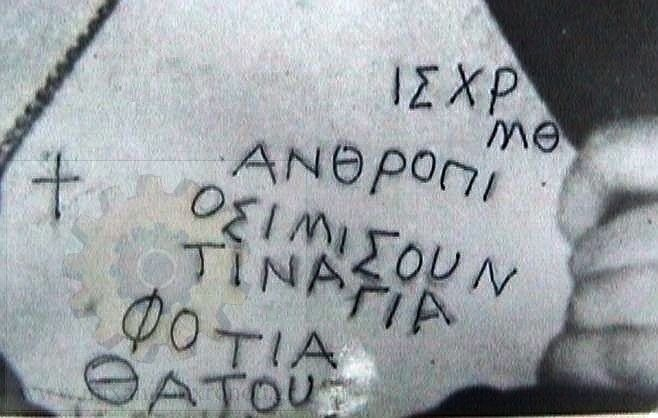 ΙΣΧΡ
ΜΘ
† ΑΝΘΡΟΠΙ
ΟΣΙΜΙΣΟΥΝ
ΤΙΝΑΓΙΑ
ΦΟΤΙΑ
ΘΑΤΟΥ